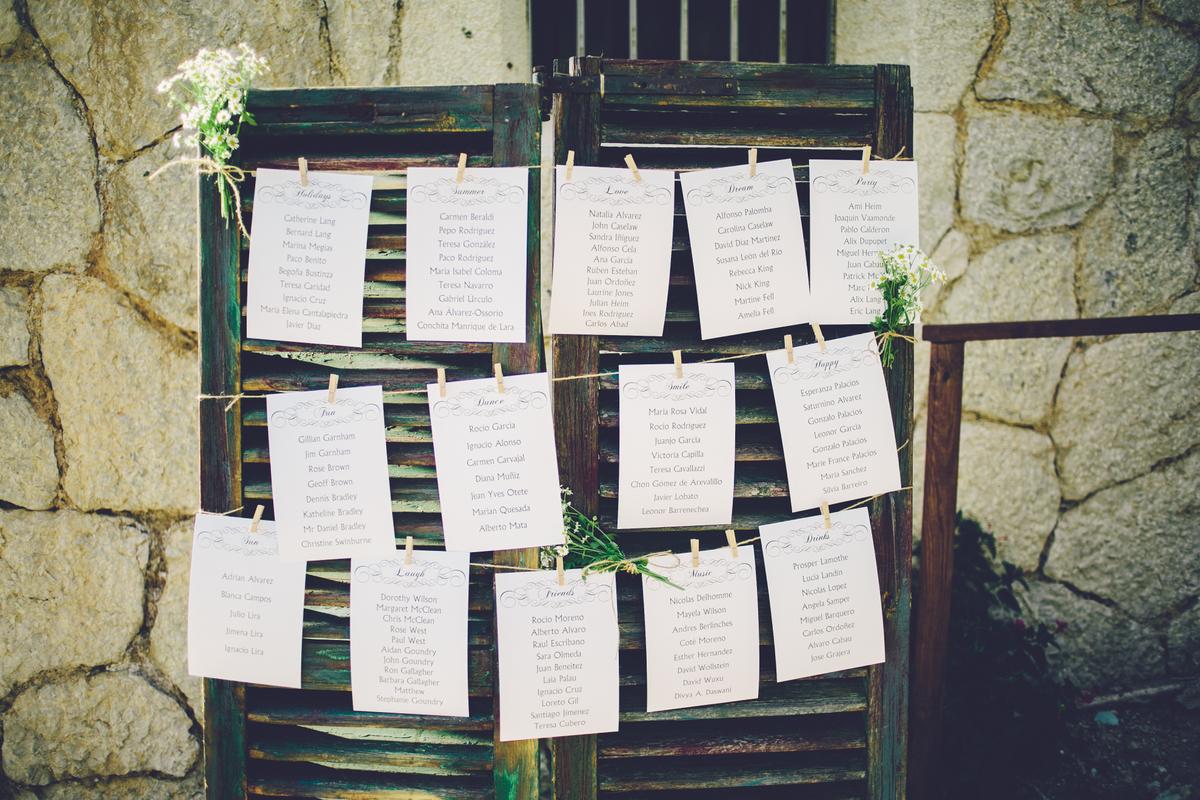 Holidays
Catherine Lang
Bernard Lang
Marina Megias
Paco Benito
Begoña Bustinza
Teresa Caridad
Ignacio Cruz
Maria Elena Cantalapiedra
Javier Diaz
Summer
Carmen Beraldi
Pepo Rodriguez
Teresa González
Paco Rodriguez
Maria Isabel Coloma
Teresa Navarro
Gabriel Urculo
Ana Álvarez-Ossorio
Conchita Manrique de Lara
Love
Natalia Alvarez
John Caselaw
Sandra Iñiguez
Alfonso Cela
Ana García
Ruben Esteban
Juan Ordoñez
Laurine Jones
Julian Heim
Ines Rodriguez
Carlos Abad
Dream
Alfonso Palomba
Carolina Caselaw
David Diaz Martinez
Susana León del Rio
Rebecca King
Nick King
Martine Fell
Amelia Fell
Party
Ami Heim
Joaquin Vaamonde
Pablo Calderon
Alix Dupupet
Miguel
Juan
Patrick
Marc
Alix Lang
Eric Lang
Fun
Gillian Garnham
Jim Garnham
Rose Brown
Geoff Brown
Dennis Bradley
Katheline Bradley
Mr Daniel Bradley
Christine Swinburne
Dance
Rocio Garcia
Ignacio Alonso
Carmen Carvajal
Diana Muñiz
Juan Yves Otete
Marian Quesada
Alberto Mata
Smile
Maria Rosa Vidal
Rocio Rodriguez
Juanjo Garcia
Victoria Capilla
Teresa Cavallazzi
Chon Gómez de Arevalillo
Javier Lobato
Leonor Barrenechea
Happy
Esperanza Palacios
Saturnino Alvarez
Gonzalo Palacios
Leonor Garcia
Gonzalo Palacios
Marie France Palacios
Maria Sanchez
Silvia Barreiro
Sun
Adrian Alvarez
Blanca Campos
Julio Lira
Jimena Lira
Ignacio Lira
Laugh
Dorothy Wilson
Margaret McClean
Chris McClean
Rose West
Paul West
Aidan Goundry
John Goundry
Ron Gallagher
Barbara Gallagher
Matthew
Stephanie Goundry
Friends
Rocio Moreno
Alberto Alvaro
Raul Escribano
Sara Olmeda
Juan Beneitez
Laia Palau
Ignacio Cruz
Loreto Gil
Santiago Jimenez
Teresa Cubero
Music
Nicolas Delhomme
Mayela Wilson
Andres Berlinches
Coté Moreno
Esther Hernandez
David Wollstein
David Wuxu
Divya A. Daswani
Drinks
Prosper Lamothe
Lucia Landin
Nicolas Lopez
Angela Samper
Miguel Barquero
Carlos Ordoñez
Alvaro Cabau
Jose Grajera